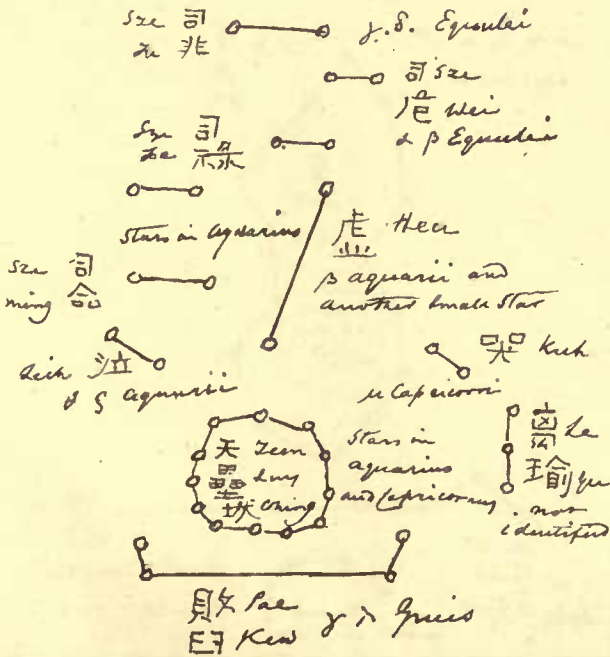 Sze 司 γ. δ. Equulei
非
司 Sze
危 Wei
α β Equulei
Sze 司
祿
Stars in Aquarius
虛 Heu
β Aquarii and
another small star
Sze 司
ming 命
泣
Aquarii
哭 Kuh
μ Capricorni
天 Teen
壘 Luy
城 Ching
Stars in
aquarius
and Capricornus
離 Le
瑜 yu
not
identified
敗 Pae
臼 Kew
γ λ Gruis